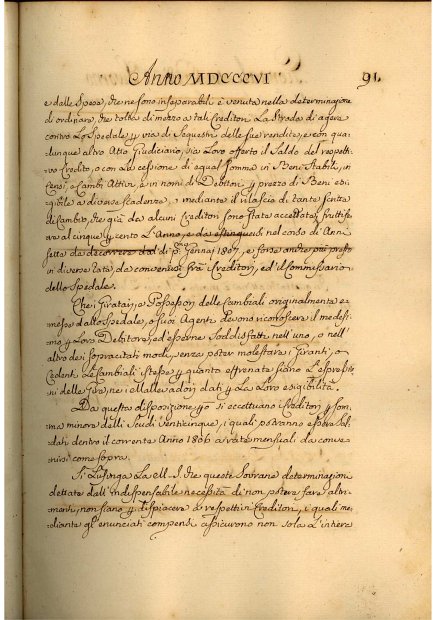 Anno MDCCCVI 91
e dalle Spese, che ne sono inseparabili è venuta nella determinazione
di ordinare, che tolta di mezzo a tali Creditori La Strada di agere
contro Lo Spedale p via di Sequestri delle sue rendite, e con qua-
lunque altro Atto Giudiciario, sia Loro offerto il Saldo del rispetti-
vo Credito, o con La cessione di egual somma in Beni Stabili, in
Censi, o Cambj Attivi, o in nomi di Debitori p prezzo di Beni esi-
gibile a diverse scadenze, o mediante il rilascio di tante scritte
di Cambio, che già da alcuni Creditori sono state accettate, fruttife-
re al cinque p cento L'Anno, e da estinguersi nel corso di Anni
sette da decorrere dal dì p.mo Gennajo 1807, e forse anche più presto
in diverse rate, da convenirsi frà i Creditori, ed il Commissario
dello Spedale.
Che i Giratarj, o Possessori delle Cambiali originalmente e-
messe dallo Spedale, o suoi Agenti devono riconoscere il medesi-
mo p Loro Debitore, ed esserne Soddisfatti nell'uno, o nell'
altro dei sopracitati modi, senza poter molestare i Giranti, o
Cedenti Le Cambiali stesse p quanto effrenate siano L'espressio-
ni delle Gire, nei alla
dati p La Loro esigibilità.
Da questa disposizione però si eccettuano i Creditori p som-
ma minore delli Scudi Venticinque, i quali potranno essere Sal-
dati dentro il corrente Anno 1806 a rate mensuali da conve-
nirsi come sopra.
Si Lusinga La M. S. che queste Sovrane determinazioni
dettate dall'indispensabile necessità di non potere fare altri-
menti, non siano p dispiacere a respettivi Creditori, i quali me-
diante gl'enunciati compensi assicurono non solo L'intiero